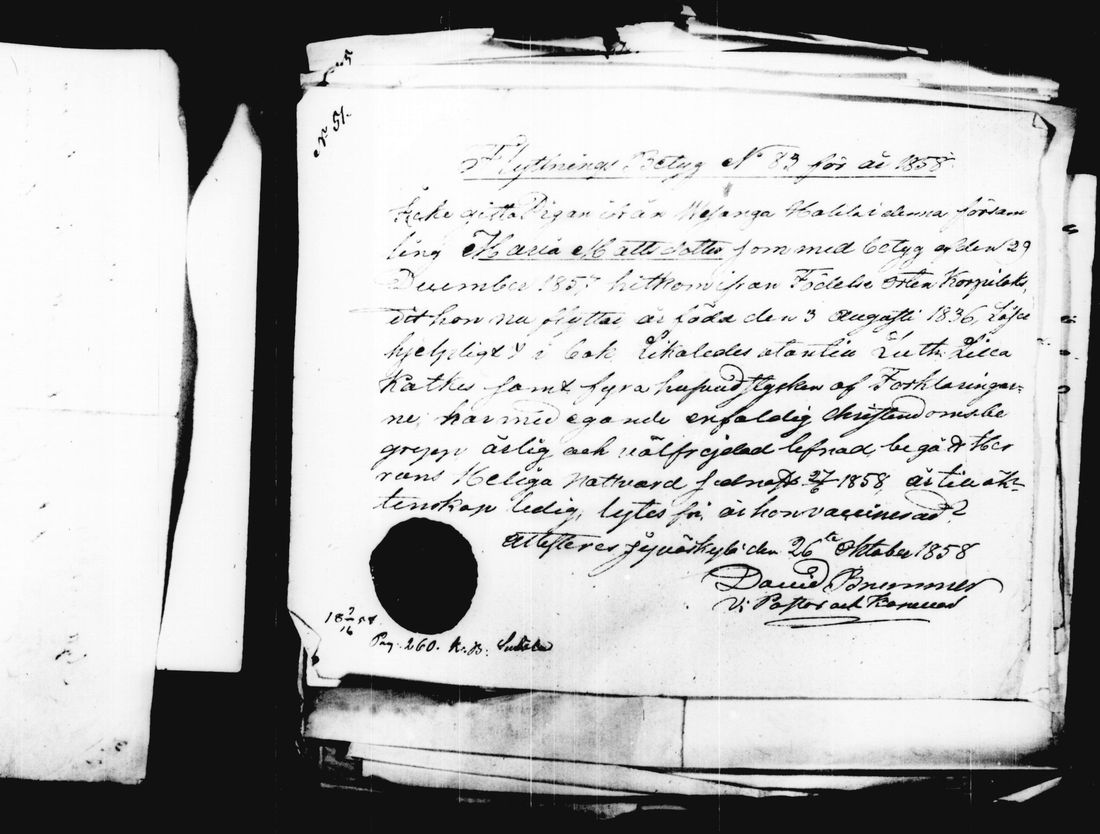 No 51.
Flyttnings Betyg No 83 för år 1858
Icke gifta Pigan ifrån Wesanga Hallki denna försam
ling Maria Mattsdotter som med betyg af den 29
December 1857 hitkom ifrån Födelse orten Korpilaks,
dit hon nu flyttar, är född den 3 Augusti 1836, Läser
hjelpligt i bok likaledes utantill Luth: Lilla
Kathes samt fyra hufvudstycken af Förklaringar-
ne; har med egande enfaldig Christendoms be
grepp ärlig och välfrejdad lefnad, begått Her
rans Heliga Nattvard sednast 27/6 1858, är till äk-
tenskap ledig, lytes fri, är hon vaccinerad?
Attesteras Jyväskylä den 26te Oktober 1858
David Brummer
V: Pastor och
Pag. 260. K. B.